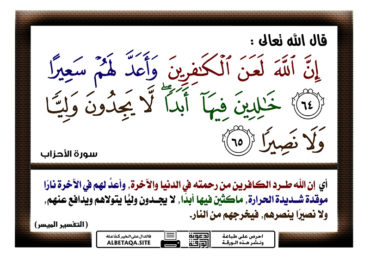 قال الله تعالى :
إِنَّ ٱللَّهَ لَعَنَ ٱلْكَٰفِرِينَ وَأَعَدَّ لَهُمْ سَعِيرًا
﴿٦٤﴾ خَٰلِدِينَ فِيهَآ أَبَدًا ۖ لَّا يَجِدُونَ وَلِيًّا
وَلَا نَصِيرًا ﴿٦٥﴾
سورة الأحزاب
أي إن الله طـرد الكافرين من رحمته في الدنيا والآخرة، وأعدَّ لهم في الآخرة نارًا
موقدة شـديدة الحرارة، ماكثين فيها أبدًا، لا يجـدون وليًا يتولاهم ويدافع عنهم،
ولا نصيرًا ينصرهم، فيخرجهم من النار.
(التفسير الميسر)
احرص على طباعة
ونشر هذه الورقة
ALBETAQA.SITE